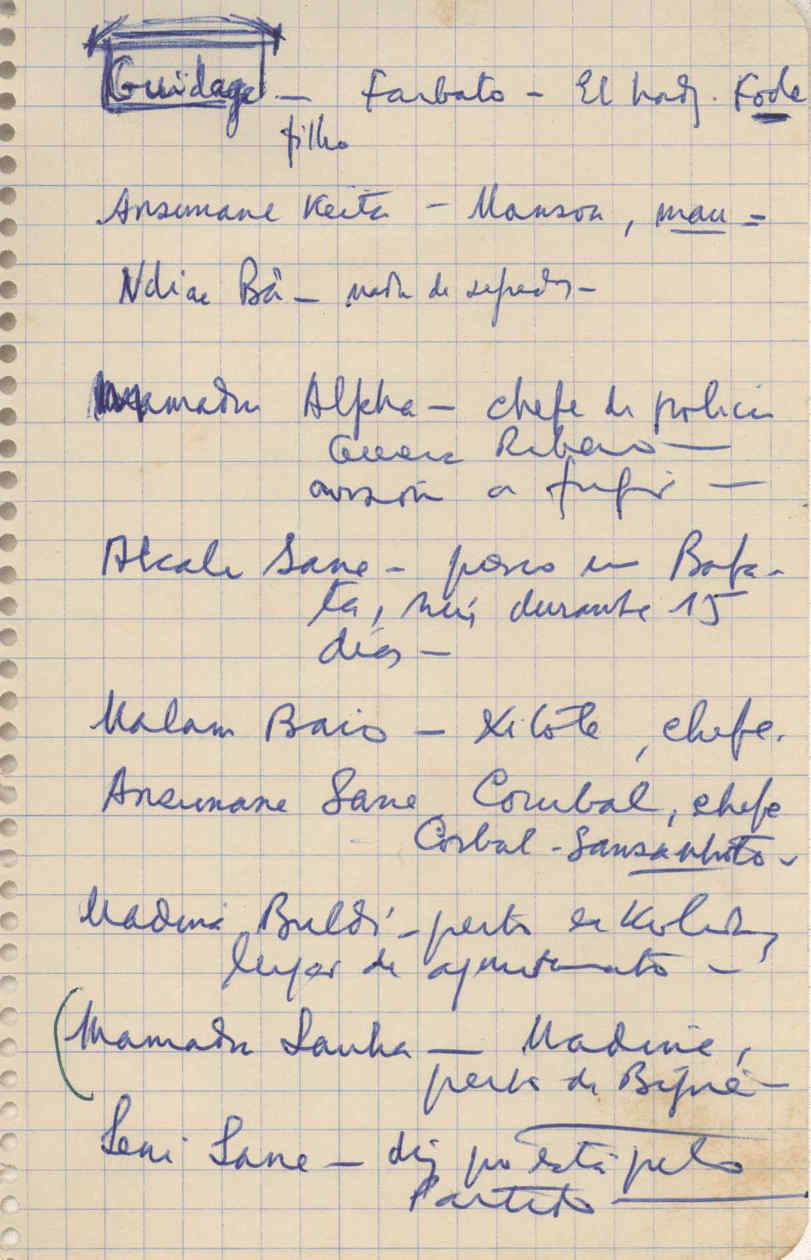 Guidage - Farbato - El hadj. Kode
filho
Ansumane Keita - Manson, mau -
Ndiae Bâ - nada de segredos -
mamadu Alpha - chefe de policia
Ribeiro -
a fugir -
Alcali Sane - preso em Bafa-
ta, durante 15
dias -
Malam Baio - Kilote, chefe.
Ansumane Sane Corubal, chefe
Corbal - Sansanhoto -
Madina Buldi - perto de
lugar de -
(Mamadu Sanha - Madina,
perto de Biginé -
Seni Sane - diz que está pelo
Partido